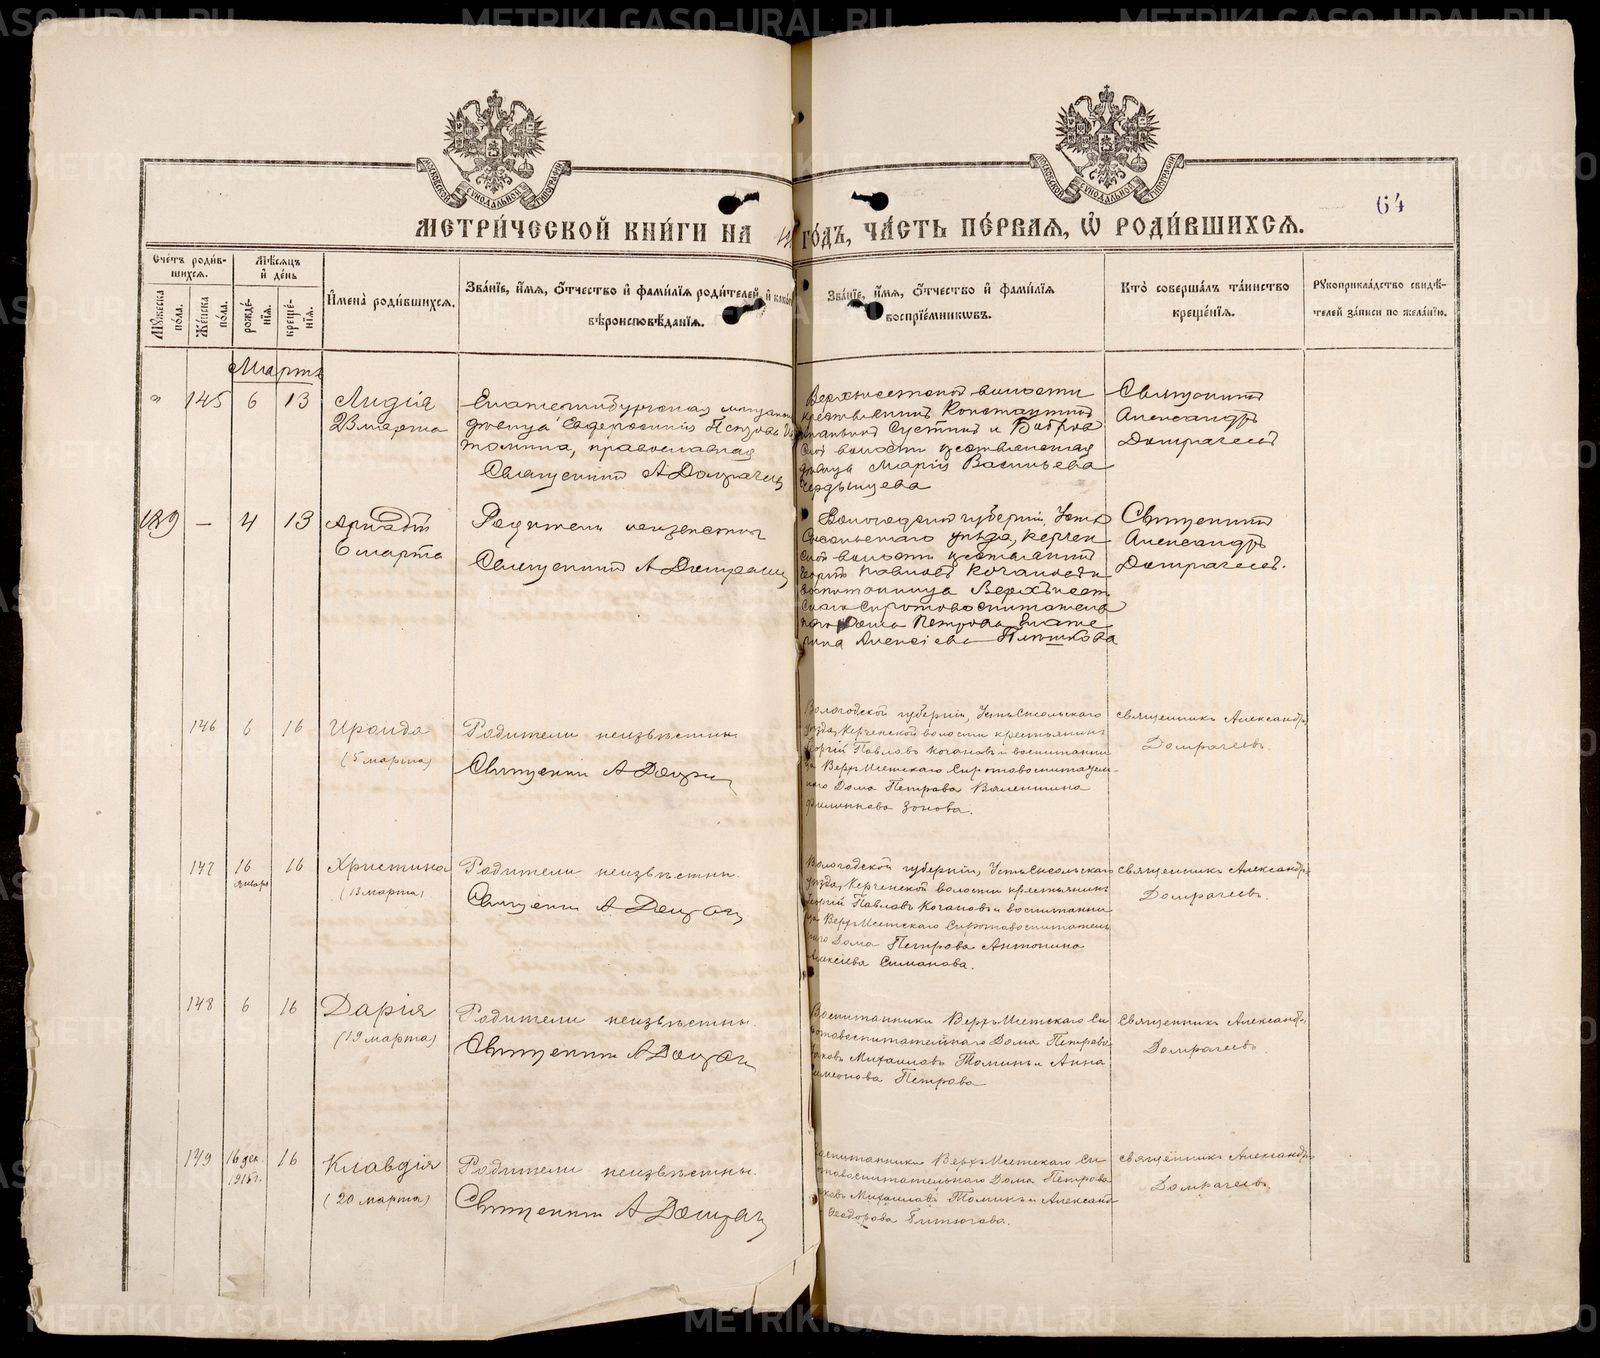 METRIKI.GASO-URAL.RU
64
МЕТРИ́ЧЕСКОЙ КНИ́ГИ НА ГО́ДЪ, ЧА́СТЬ ПЕ́РВАЯ, Ѡ҆ РОДИ́ВШИХСЯ.
Сче́тъ роди́в-
шихся.
Мѣ́сяцъ
и҆ де́нь
Мꙋ́жеска
по́ла.
Же́нска
по́ла.
рожде́-
нїя.
креще́-
нїя.
И҆мена̀ роди́вшихся.
Зва́нїе, и҆́мя, ѻ҆́тчество и҆ фами́лїя роди́телей, и҆ како́гѡ
вѣроисповѣ́данїя.
Зва́нїе, и҆́мя, ѻ҆́тчество и҆ фами́лїя
воспрїе́мникѡвъ.
Кто̀ соверша́лъ та́инство
креще́нїя.
Рꙋкоприкла́дство свидѣ́-
телей за́писи по жела́нїю.
Мартъ
145 6 13 Лидія
23 марта
Екатеринбургская мѣщанская
дѣвица Евфросинія Петрова
православная
Священникъ А Домрачевъ
Верхисетской волости
крестьянинъ Константинъ
и Бобров
ской волости крестьянская
дѣвица Марія Васильева
Священникъ
Александръ
Домрачевъ
139 — 4 13 Аркадій
6 марта
Родители неизвѣстны
Священникъ А Домрачевъ
Вологодской губерніи, Усть
Сысольскаго уѣзда, Керчен
ской волости крестьянинъ
Георгій Павловъ Кочановъ и
воспитанница Верхъисет
скаго Сиротовоспитатель
наго Дома Петрова Екате
рина Алексіева Плѣшкова
Священникъ
Александръ
Домрачевъ.
146 6 16 Ираида
(5 марта)
Родители неизвѣстны
Священникъ А Домрач
Вологодской губерніи, УстьСысольскаго
уѣзда, Керченской волости крестьянинъ
Георгій Павловъ Кочановъ и воспитанни
ца ВерхъИсетскаго Сиротовоспитатель-
наго Дома Петрова Валентина
Филиппова Зонова.
Священникъ Александръ
Домрачевъ.
147 16
января
16 Христина
(13 марта)
Родители неизвѣстны.
Священникъ А Домрач
Вологодской губерніи, УстьСысольскаго
уѣзда, Керченской волости крестьянинъ
Георгій Павловъ Кочановъ и воспитанни
ца ВерхъИсетскаго Сиротовоспитатель
наго Дома Петрова Антонина
Алексіева Симанова.
Священникъ Александръ
Домрачевъ.
148 6 16 Дарія
(19 марта)
Родители неизвѣстны.
Священникъ А Домрач
Воспитанники ВерхъИсетскаго Си
ротовоспитательнаго Дома Петрова
Михаиловъ Томинъ и Анна
Симеонова Петрова
Священникъ Александръ
Домрачевъ.
149 16 дек.
1915 г.
16 Клавдія
(20 марта)
Родители неизвѣстны.
Священникъ А Домрач
Воспитанники ВерхъИсетскаго Си
ротовоспитательнаго Дома Петрова
Михаиловъ Томинъ и Александра
Ѳеодорова
Священникъ Александръ
Домрачевъ.